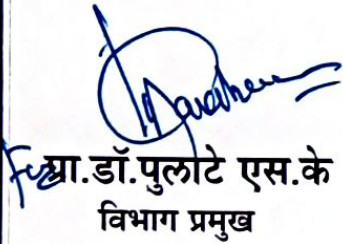 For
प्रा.डॉ.पुलाटे एस.के
विभाग प्रमुख